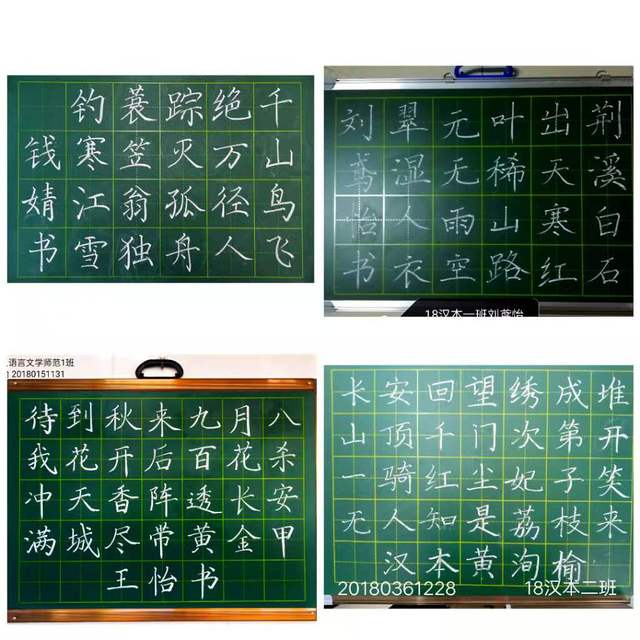 千山鸟飞
绝万径人
踪灭孤舟
蓑笠翁独
钓寒江雪
钱婧书
荆溪白石
出天寒红
叶稀山路
元无雨空
翠湿人衣
刘鸢怡书
18汉本一班刘鸢怡
语言文学师范1班
20180151131
待到秋来九月八
我花开后百花杀
冲天香阵透长安
满城尽带黄金甲
王怡书
长安回望绣成堆
山顶千门次第开
一骑红尘妃子笑
无人知是荔枝来
汉本黄洵榆
20180361228
18汉本二班